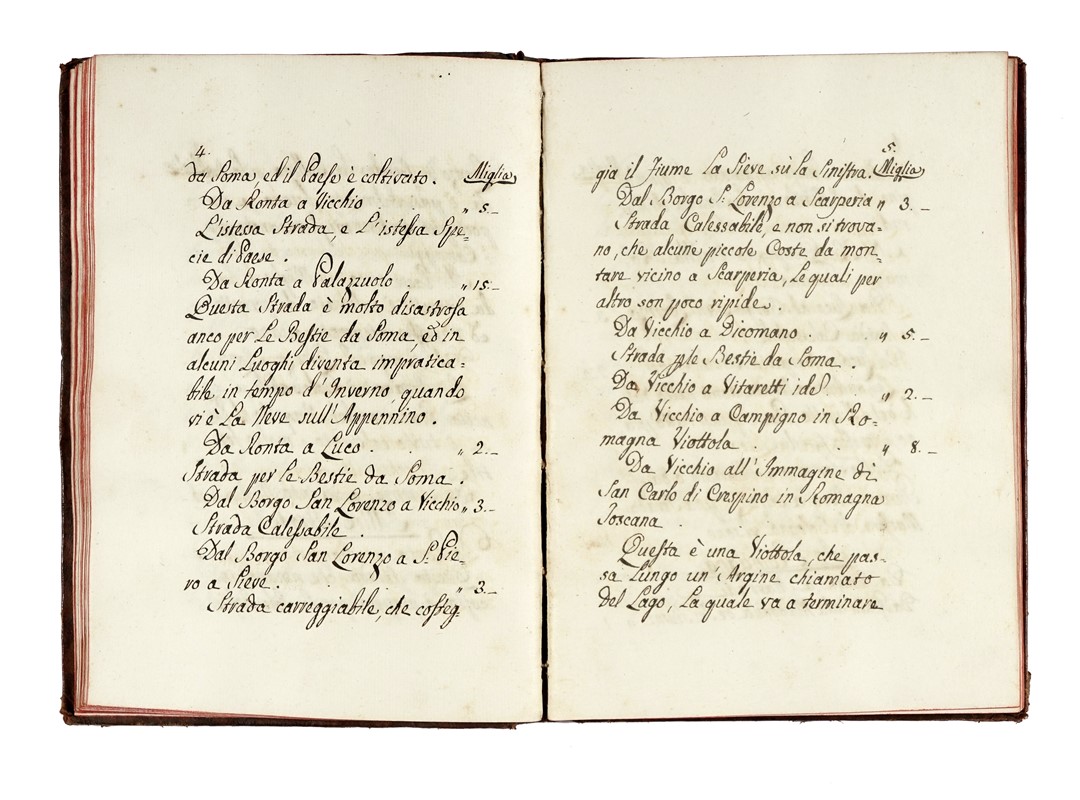 4.
da Soma, ed il Paese è coltivato. Miglia
Da Ronta a Vicchio „ 5.–
L'istessa Strada, e L'istessa Spe=
cie di Paese.
Da Ronta a Palazzuolo „ 15.–
Questa Strada è molto disastrosa
anco per Le Bestie da Soma, ed in
alcuni Luoghi diventa impratica=
bile in tempo d'Inverno, quando
vi è La Neve sull'Appennino.
Da Ronta a Luco . . „ 2.–
Strada per le Bestie da Soma.
Dal Borgo San Lorenzo a Vicchio „ 3.–
Strada Calessabile .
Dal Borgo San Lorenzo a S. Pie=
ro a Sieve . „ 3.–
Strada carreggiabile, che costeg=
5.
gia il Fiume La Sieve sù la Sinistra. Miglia
Dal Borgo S. Lorenzo a Scarperia „ 3.–
Strada Calessabile, e non si trova=
no, che alcune piccole Coste da mon=
tare vicino a Scarperia, Le quali per
altro son poco ripide.
Da Vicchio a Dicomano . . „ 5.–
Strada ple Bestie da Soma .
Da Vicchio a Vitaretti „ 2.–
Da Vicchio a Campigno in Ro=
magna Viottola . „ 8.–
Da Vicchio all'Immagine di
San Carlo di Crespino in Romagna
Toscana .
Questa è una Viottola, che pas=
sa Lungo un'Argine chiamato
del Lago, La quale va a terminare